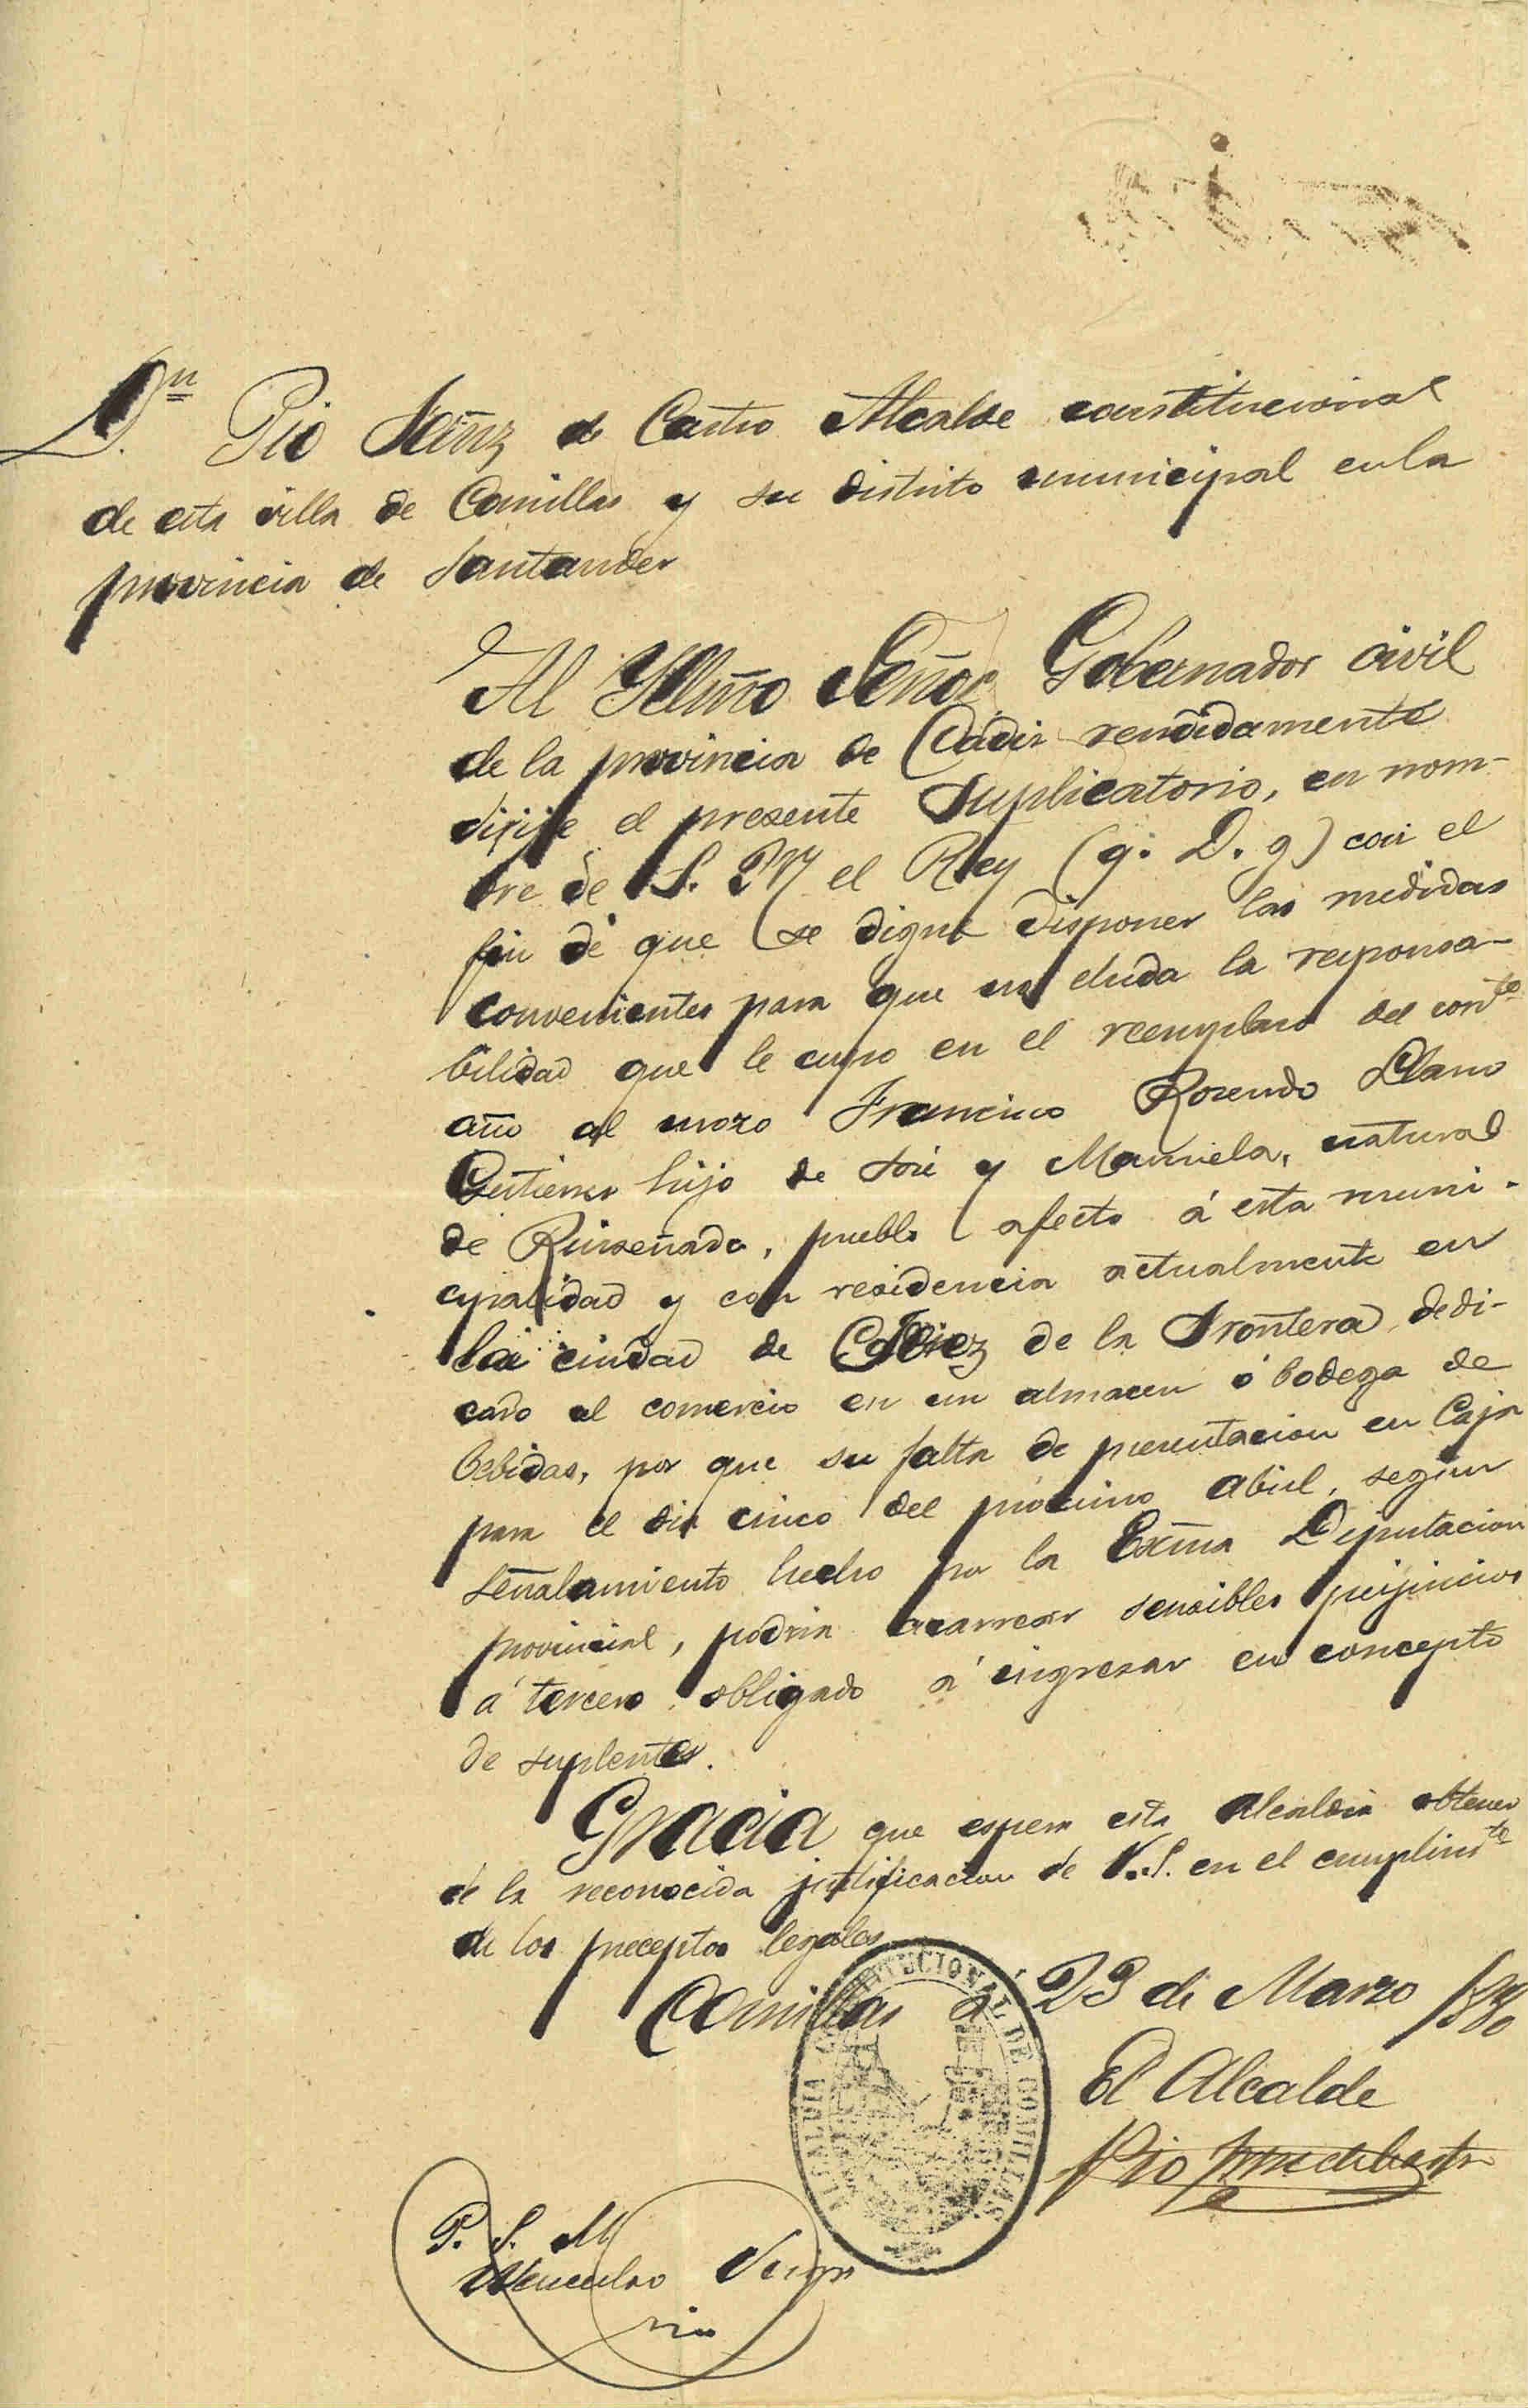 Dn Pio Sainz de Castro Alcalde constitucional
de esta villa de Comillas y su distrito municipal en la
provincia de Santander
Al Yllmo Señor Gobernador civil
de la provincia de Cadiz rendidamente
dirije el presente Suplicatorio, en nom-
bre de S. M el Rey (q. D. g) con el
fin de que se digne disponer las medidas
convenientes para que no eluda la reponsa-
bilidad que le cupo en el reemplazo del corrte
año al mozo Francisco Rosendo Llano
Gutierrez hijo de José y Manuela, natural
de Ruiseñada, pueblo afecto á esta muni-
cipalidad y con residencia actualmente en
la ciudad de Jerez de la Frontera, dedi-
cado al comercio en un almacen ó bodega de
bebidas, por que su falta de presentacion en Caja
para el dia cinco del próximo Abril, segun
señalamiento hecho por la Exma Diputacion
provincial, podria acarrear sensibles perjuicios
á tercero obligado á ingresar en concepto
de suplente.
Gracia que espera esta Alcaldia obtener
de la reconocida justificacion de V.S. en el cumplimte
de los preceptos legales
Comillas á 23 de Marzo 1880
El Alcalde
Pio Sainz de Castro
ALCALDIA CONSTITUCIONAL DE COMILLAS
P. S. M
Wenceslao